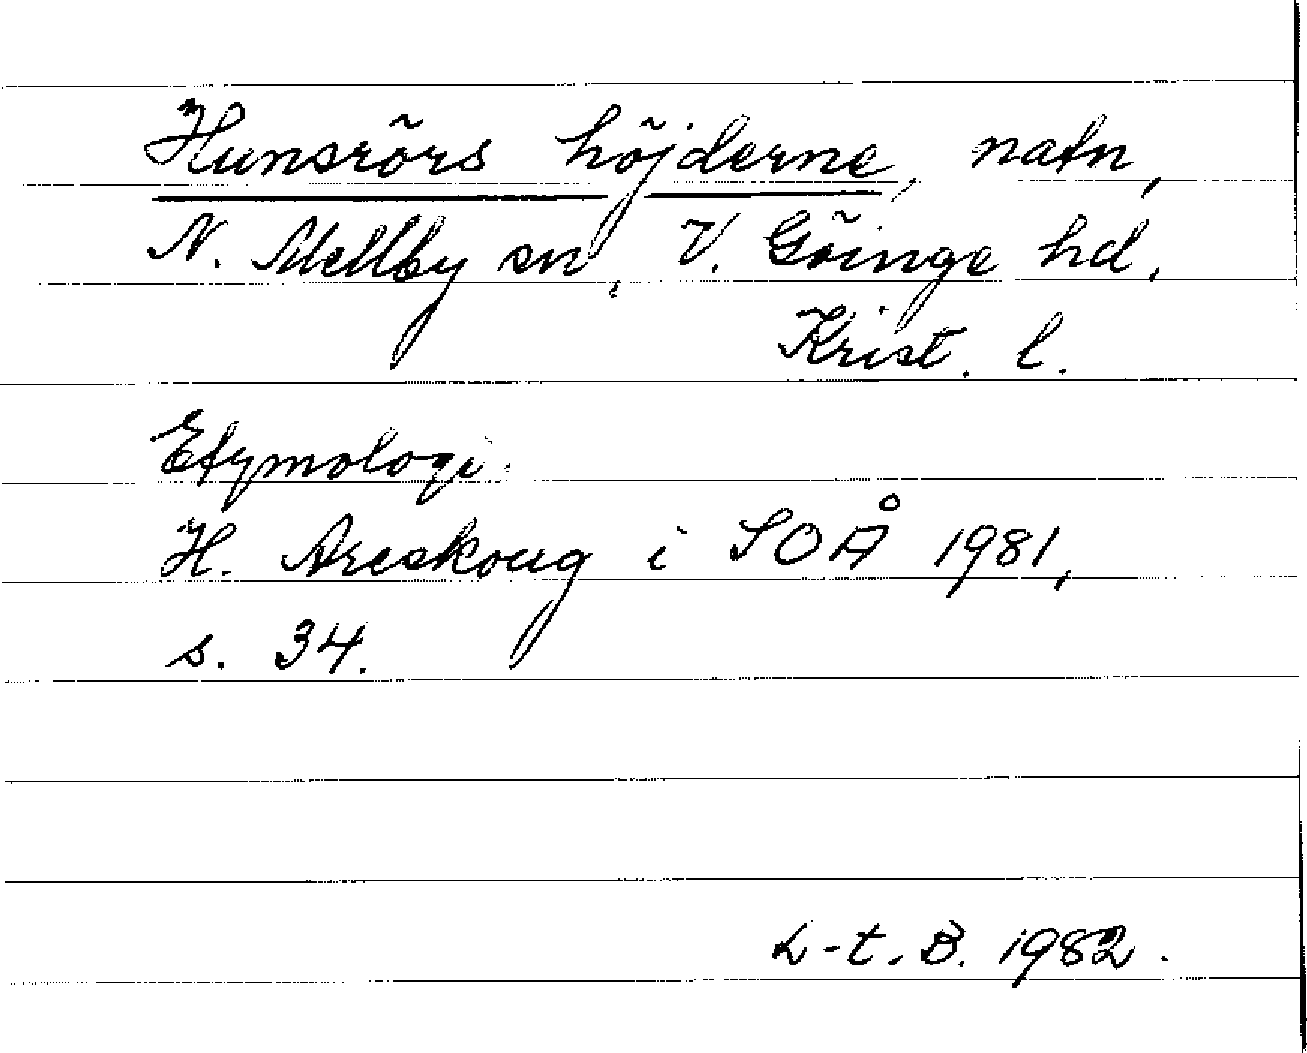 Hunsrörs höjderne, natn,
N. Mellby sn, V. Göinge hd.
Krist. l.
Etymologi.
H. Areskoug i SOÅ 1981,
s. 34.
L-t. B. 1982.